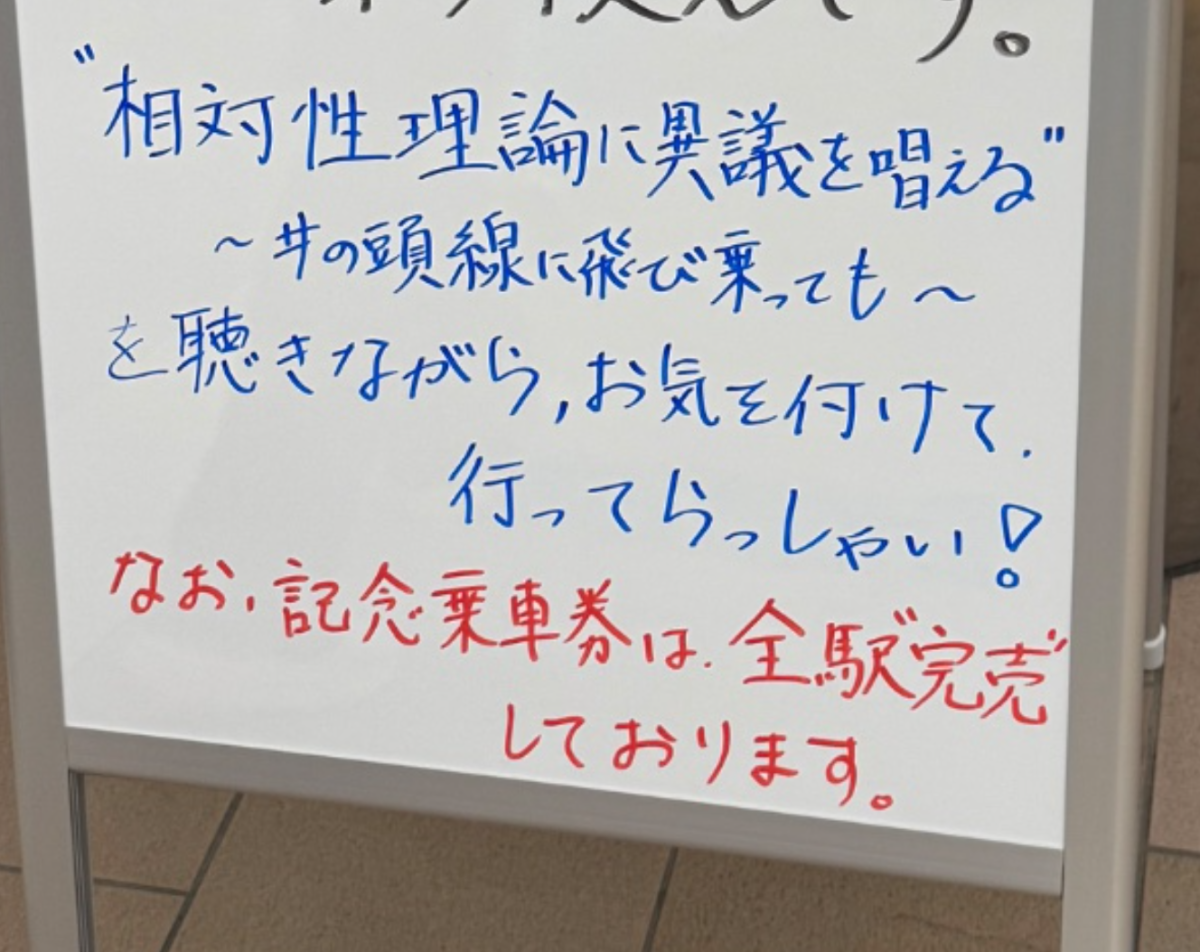 です。
"相対性理論に異議を唱える"
~井の頭線に飛び乗っても~
を聴きながら,お気を付けて.
行ってらっしゃい!
なお,記念乗車券は.全駅完売
しております。